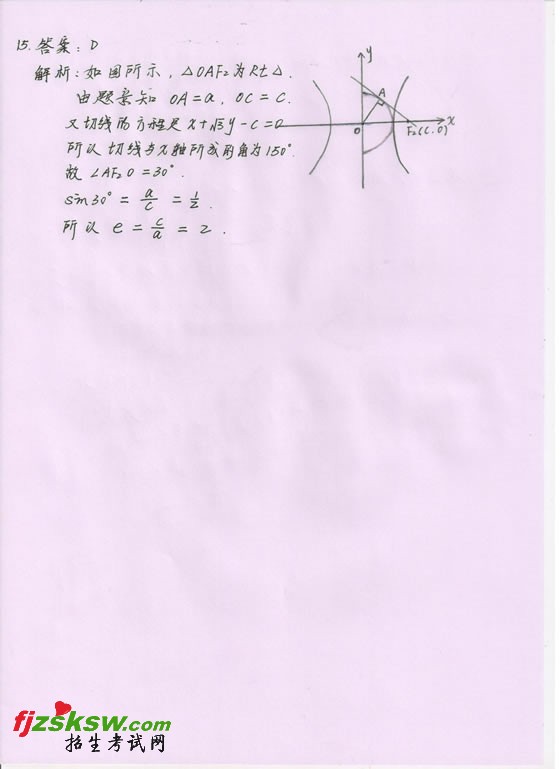 15. 答案: D
解析: 如图所示, △OAF₂为Rt△.
由题意知 OA=a, OC=c.
又切线的方程是 x+√3y-c=0
所以切线与x轴所成的角为150°.
故 ∠AF₂O=30°.
sin30°=a/c=1/2.
所以 e=c/a=2.
y
A
O
F₂(c,0)
x
fjzsksw.com
招生考试网